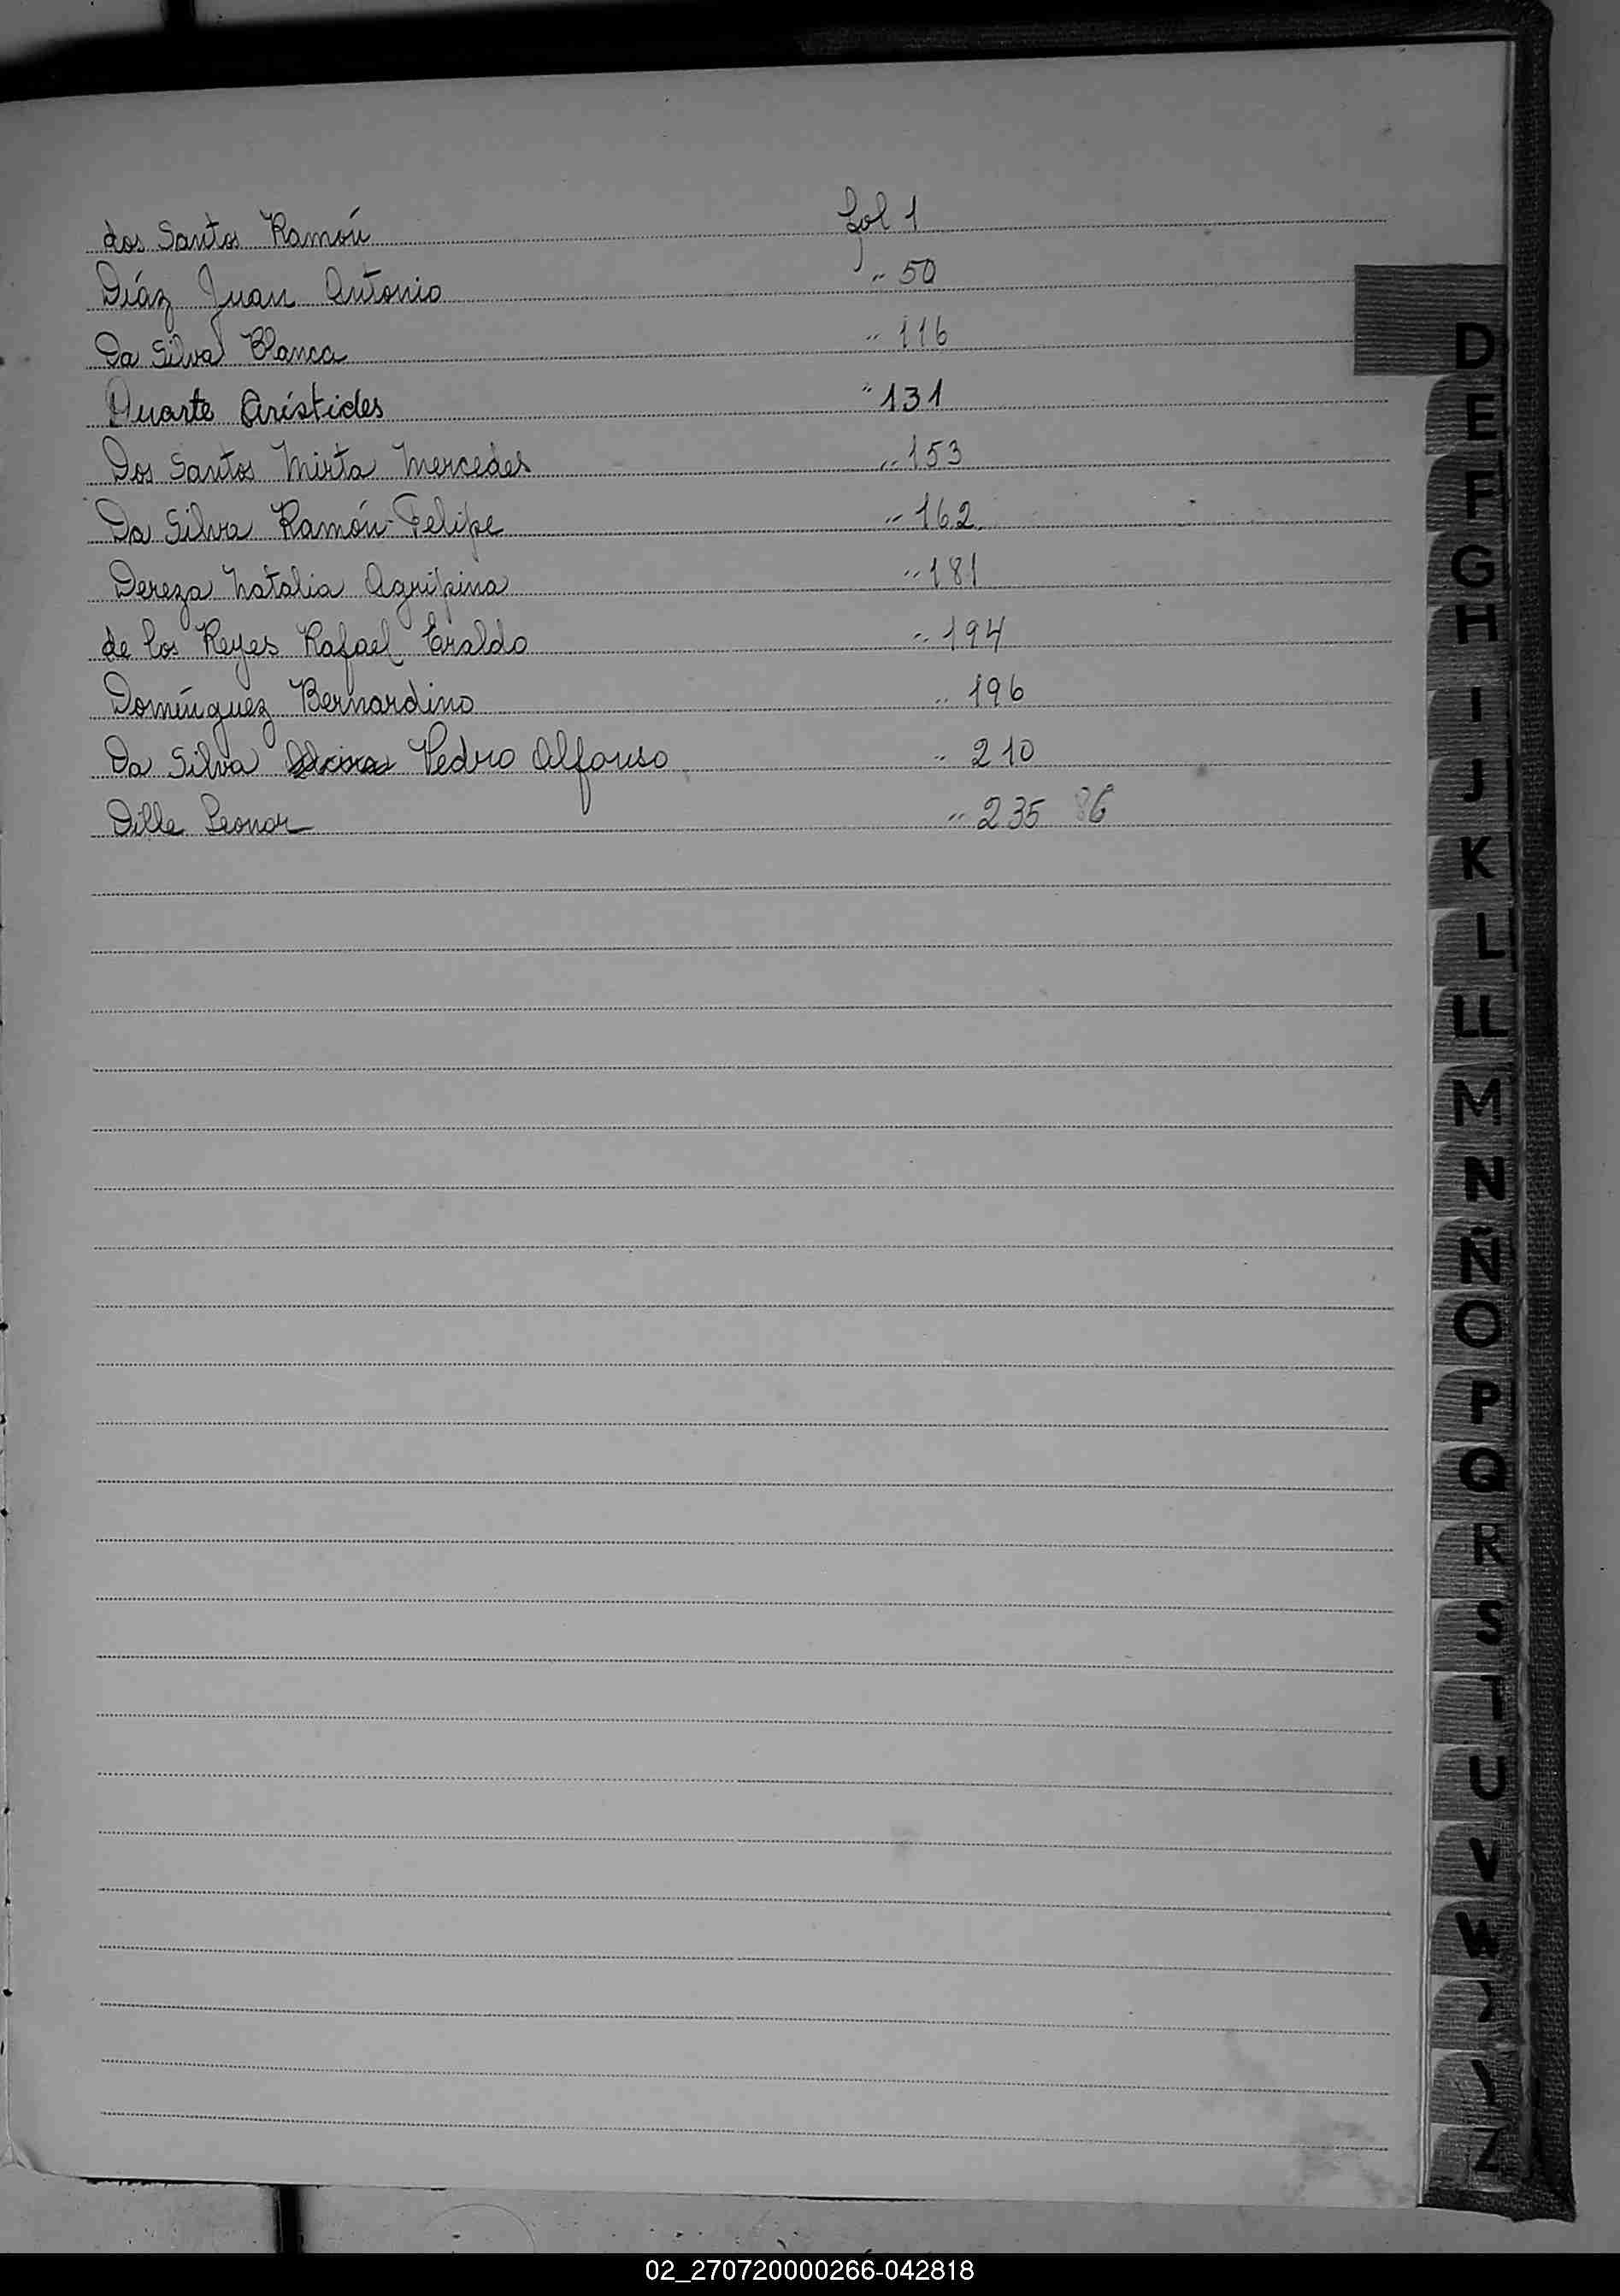 dos Santos Ramón Fol 1
Díaz Juan Antonio " 50
Da Silva Blanca " 116
Duarte Arístides " 131
Dos Santos Mirta Mercedes " 153
Da Silva Ramón Felipe " 162
Dereza Natalia Agripina " 181
de los Reyes Rafael Eraldo " 194
Domínguez Bernardino " 196
Da Silva Pedro Alfonso " 210
Dille Leonor " 235 86
D
E
F
G
H
I
J
K
L
LL
M
N
Ñ
O
P
Q
R
S
T
U
V
W
Z
02_270720000266-042818